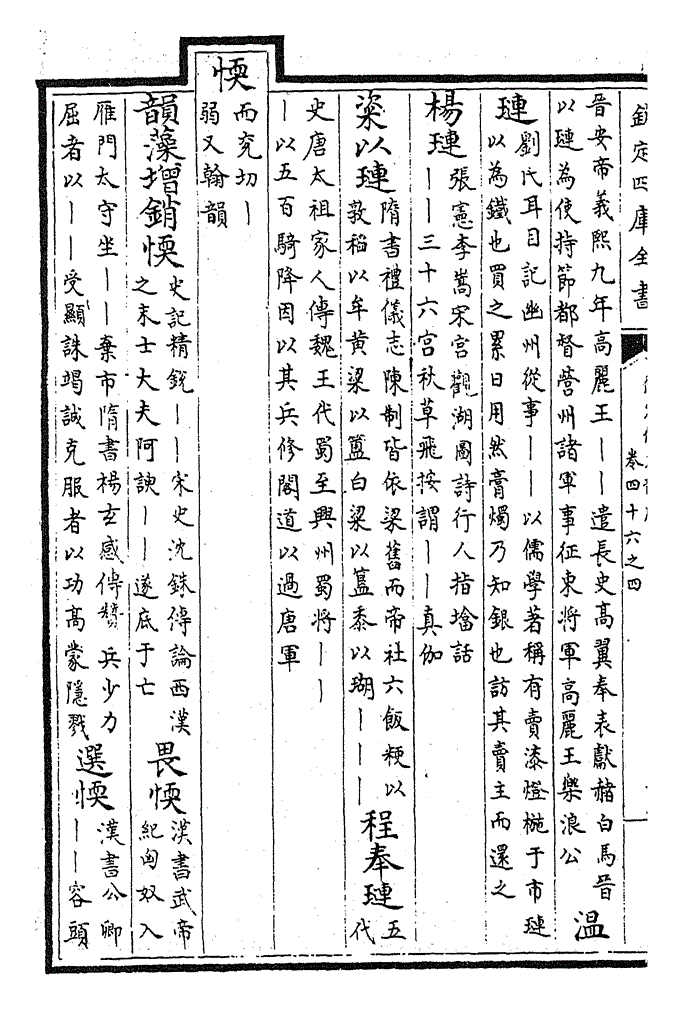 欽定四庫全書
卷四十六之四
晉安帝義熙九年高麗王——遣長史高翼奉表獻赭白馬晉
以璉為使持節都督營州諸軍事征東將軍高麗王樂浪公
溫
璉
劉氏耳目記幽州從事——以儒學著稱有賣漆燈椀于市璉
以為鐵也買之累日用然膏燭乃知銀也訪其賣主而還之
楊璉
張憲李嵩宋宮觀湖圖詩行人指墖話
——三十六宮秋草飛按謂——真伽
粢以璉
隋書禮儀志陳制皆依梁舊而帝社六飯粳以
敦稻以牟黄粱以簠白粱以簋黍以瑚———
程奉璉
五
代
史唐太祖家人傳魏王代蜀至興州蜀將——
—以五百騎降因以其兵修閣道以過唐軍
愞
而兖切—
弱又翰韻
韻藻增銷愞
史記精鋭——宋史沈銖傳論西漢
之末士大夫阿諛——遂底于亡
畏愞
漢書武帝
紀匈奴入
雁門太守坐——棄市隋書楊玄感傳贊兵少力
屈者以——受顯誅竭誠克服者以功高蒙隱戮
選愞
漢書公卿
——容頭